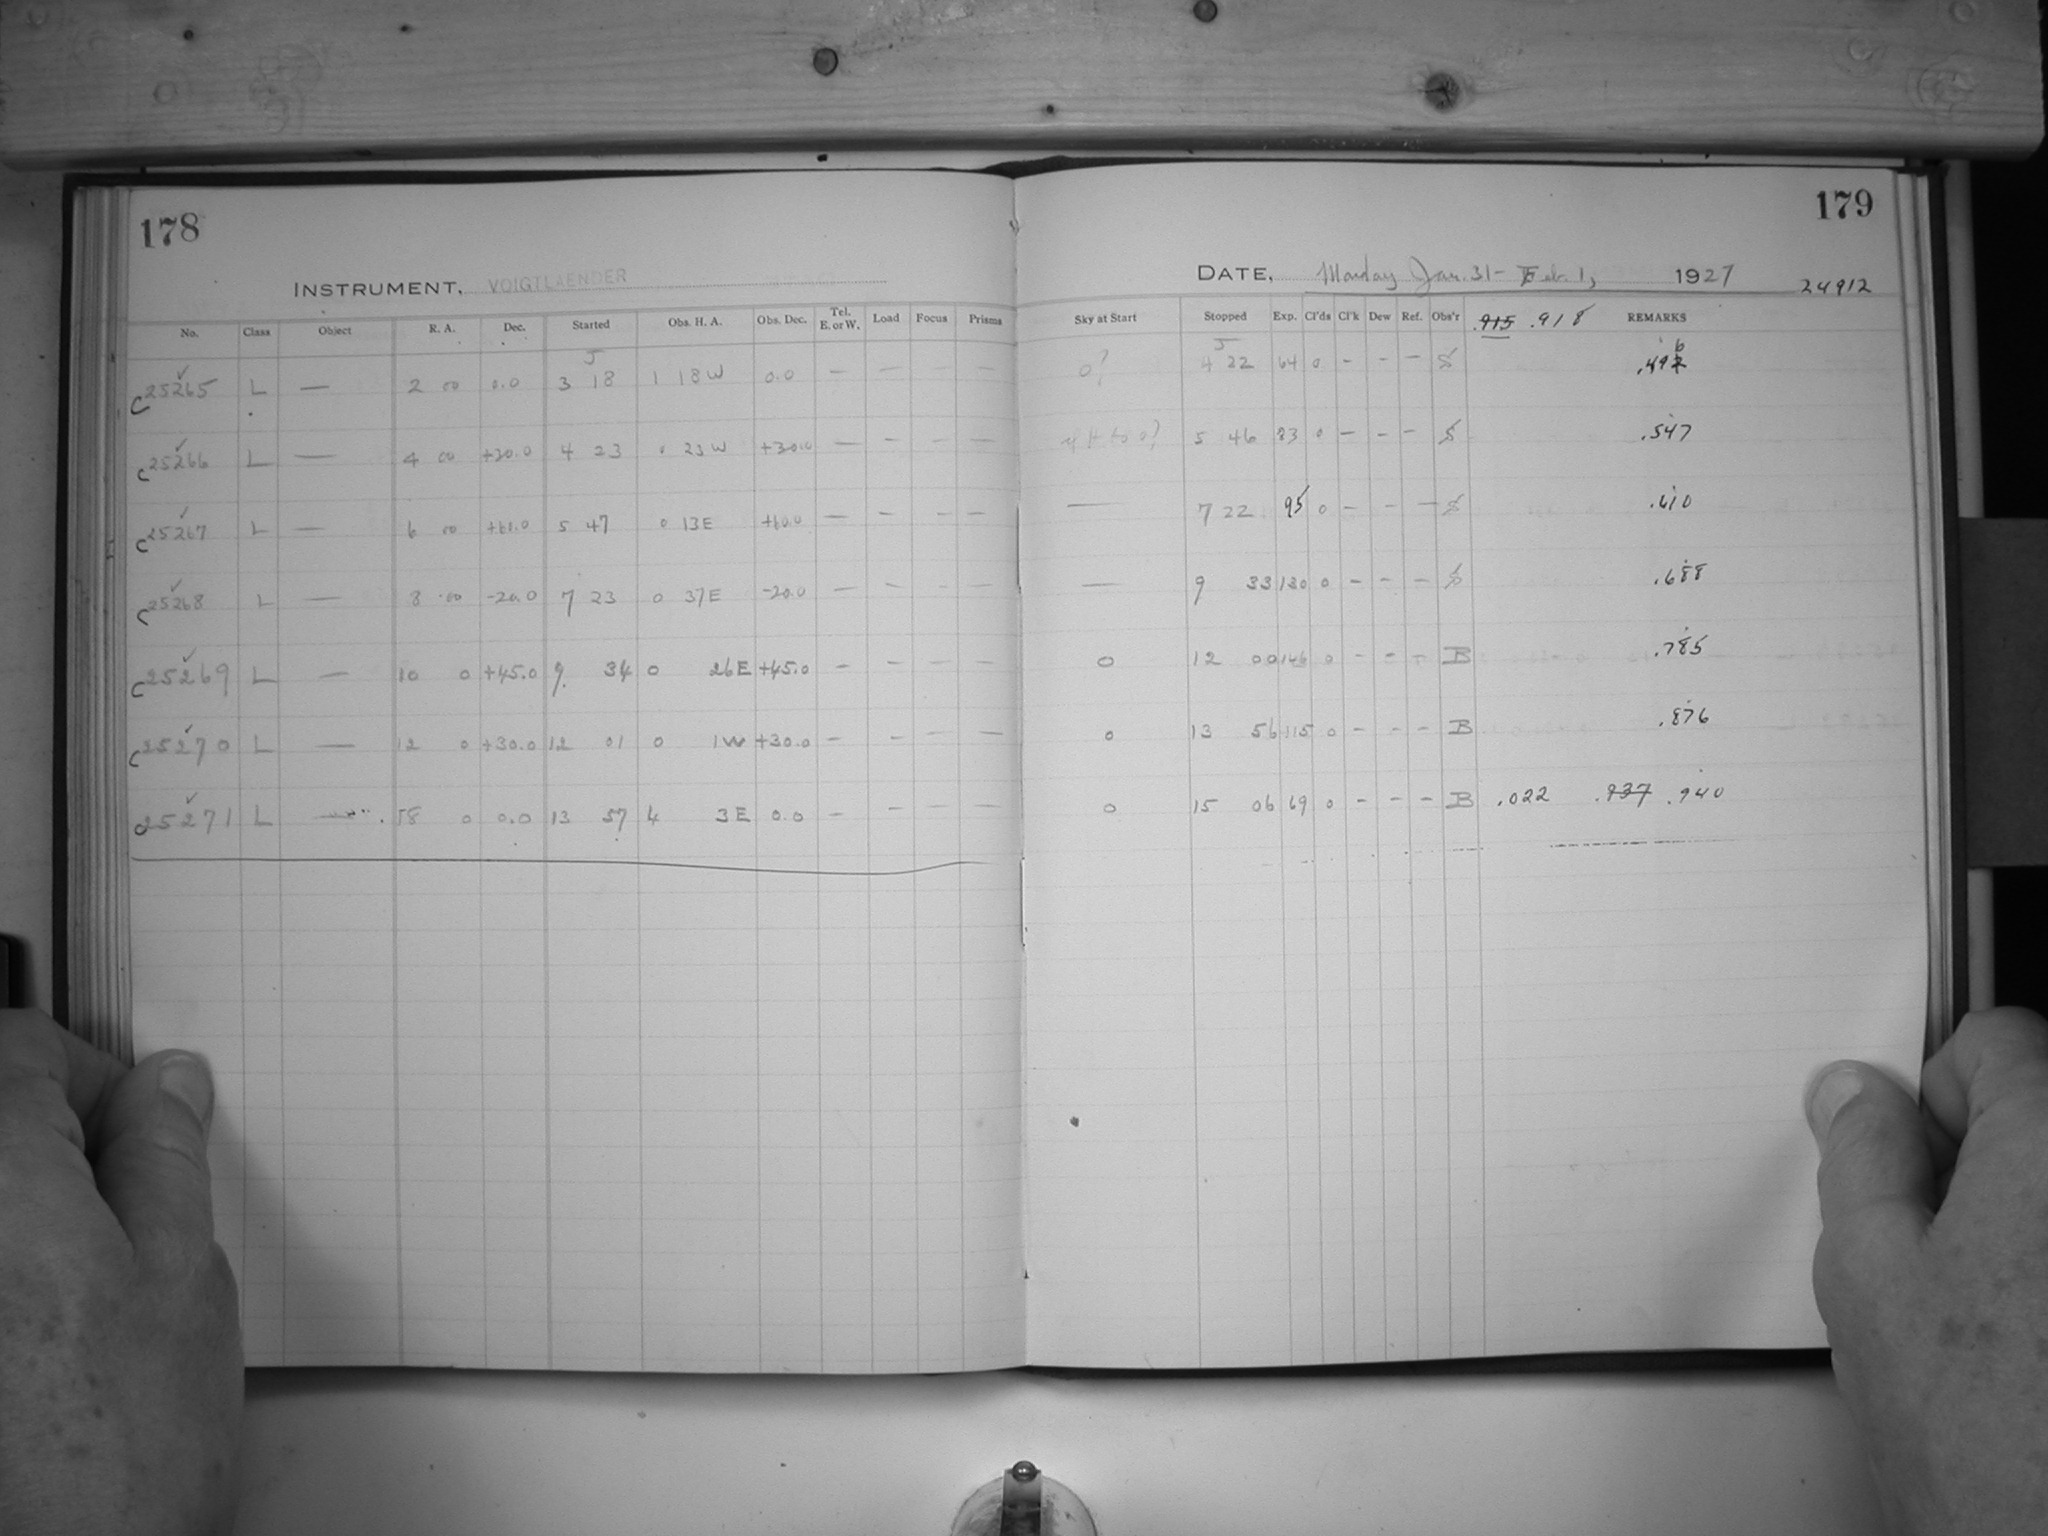 178
INSTRUMENT, VOIGTLAENDER
No. Class Object R. A. Dec. Started Obs. H. A. Obs. Dec. Tel. E. or W. Load Focus Prisms
J
C25265 ✓ L — 2 00 0.0 3 18 1 18W 0.0 — — — —
C25266 ✓ L — 4 00 +30.0 4 23 0 23W +30.0 — — — —
C25267 ✓ L — 6 00 +60.0 5 47 0 13E +60.0 — — — —
C25268 ✓ L — 8 00 -20.0 7 23 0 37E -20.0 — — — —
C25269 ✓ L — 10 0 +45.0 9 34 0 26E +45.0 — — — —
C25270 ✓ L — 12 0 +30.0 12 01 0 1W +30.0 — — — —
C25271 ✓ L — 18 0 0.0 13 57 4 3E 0.0 — — — —
179
DATE, Monday Jan. 31 - Feb. 1, 1927
24912
Sky at Start Stopped Exp. Cl'ds Cl'k Dew Ref. Obs'r .915 .918 REMARKS
J
0? 4 22 64 0 — — — S .496
to 0? 5 46 83 0 — — — S .547
— 7 22 95 0 — — — S .610
— 9 33 130 0 — — — S .688
0 12 00 146 0 — — — B .785
0 13 56 115 0 — — — B .876
0 15 06 69 0 — — — B .022 .937 .940